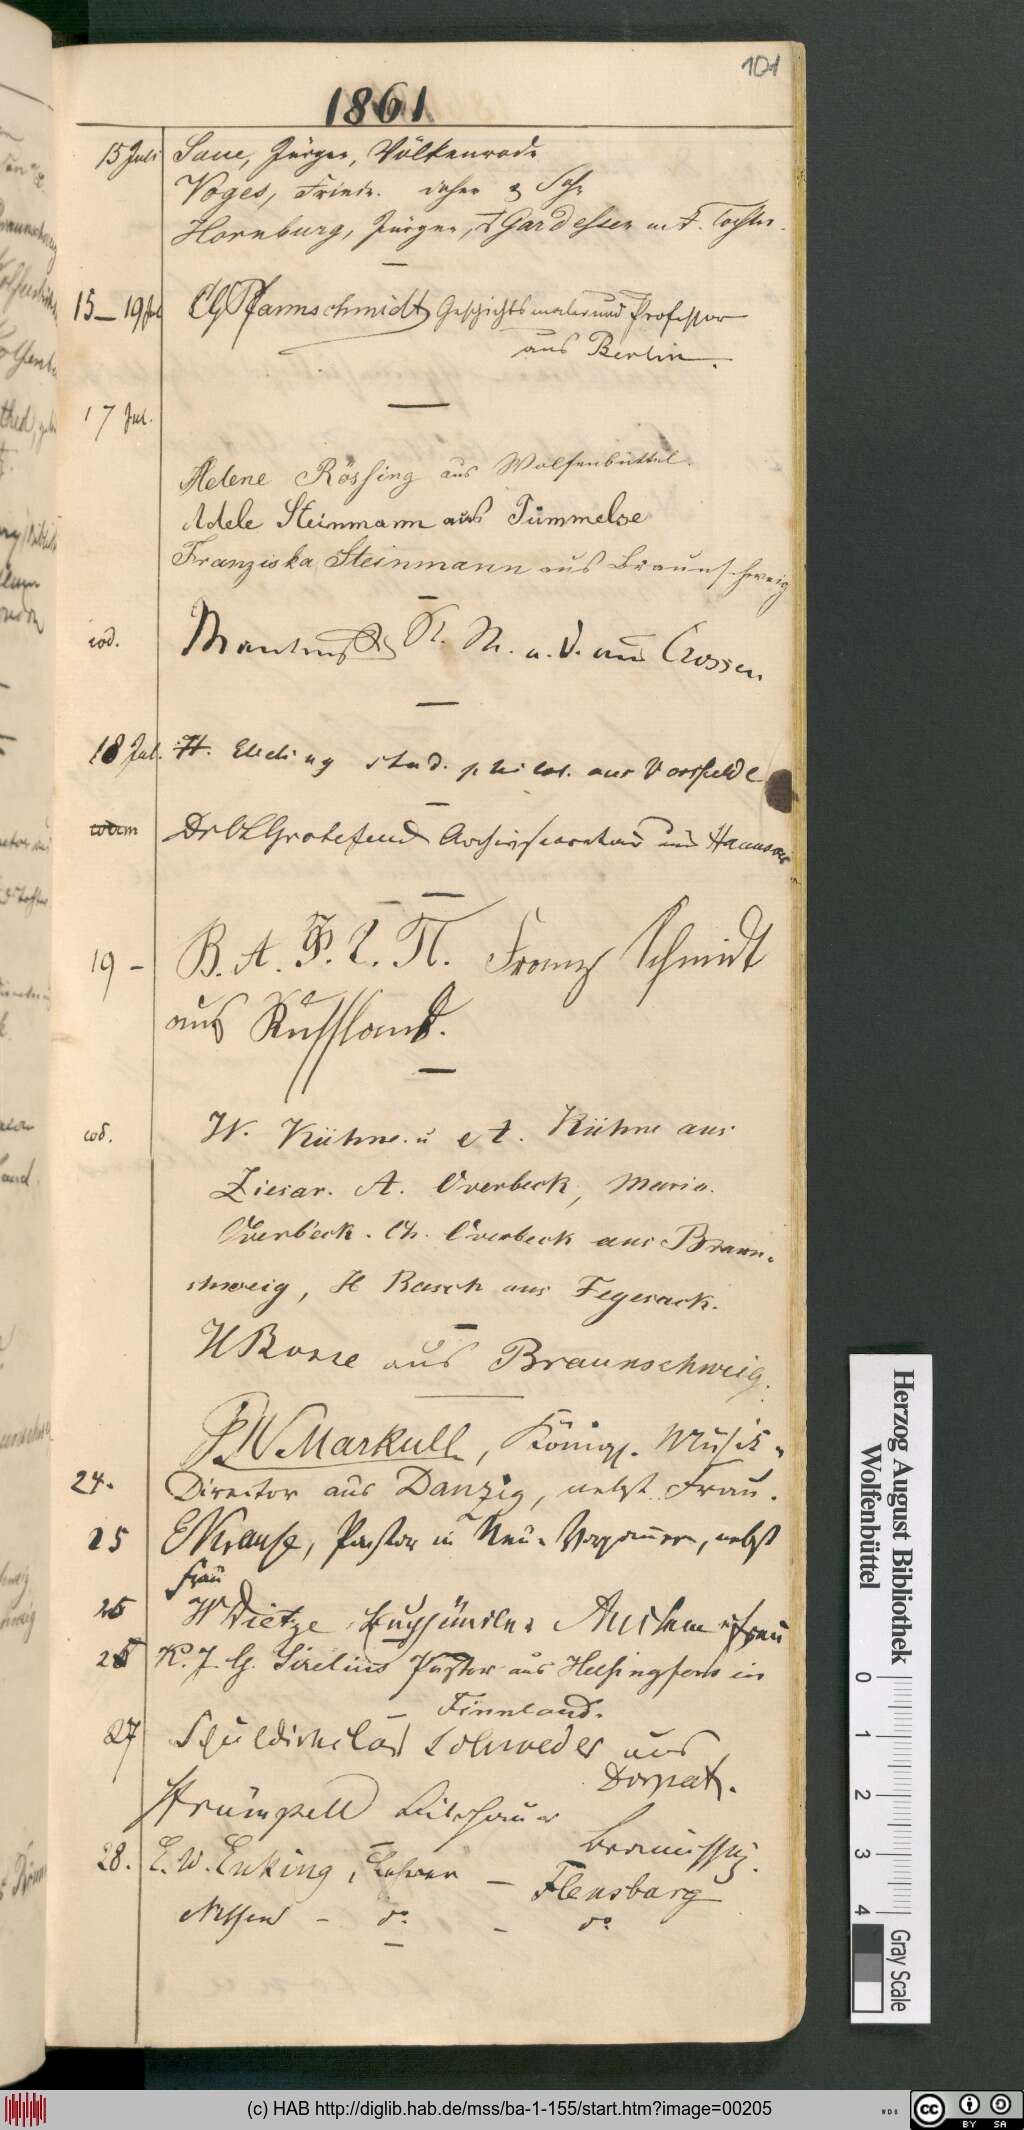 101
1861
15 Juli Saue, Jürgen, Völkenrode
Voges, Friedr. daher
Hornburg, Jürgen, Gardessen u. Tochter.
15–19 Jul CG Pfannschmidt Geschichtsmaler und Professor
aus Berlin.
17 Jul.
Helene Rössing aus Wolfenbüttel.
Adele Steinmann aus Tümmelse
Franziska Steinmann aus Braunschweig
eod. K. M. a. D. aus Crossen
18 Jul. H. Ebeling stud. philol. aus Vorsfelde
eodem Dr CL Grotefend Archivsecretair aus Hannover
19 – B. A. Franz Schmidt
aus Russland.
eod. W. Kühne. u A. Kühne aus
Ziesar. A. Overbeck, Maria.
Overbeck. Ch. Overbeck aus Braun-
schweig, H Rasch aus Fegesack.
H Bosse aus Braunschweig.
F. W. Markull, Königl. Musik-
24. Director aus Danzig, nebst Frau.
25 E Krause, Pastor in Neu-Vorpommern, nebst
Frau
25 W Dietze
25 K. J. G. Sirelius Pastor aus Helsingfors in
Finnland.
27 Schuldirector Schroeder aus
Dorpat.
Strümpell Bildhauer
Braunschwg.
28. E. W. Enking, Lehrer – Flensburg
Nissen – do – do
Herzog August Bibliothek
Wolfenbüttel
0 1 2 3 4
Gray Scale
(c) HAB http://diglib.hab.de/mss/ba-1-155/start.htm?image=00205
WDB
cc BY SA